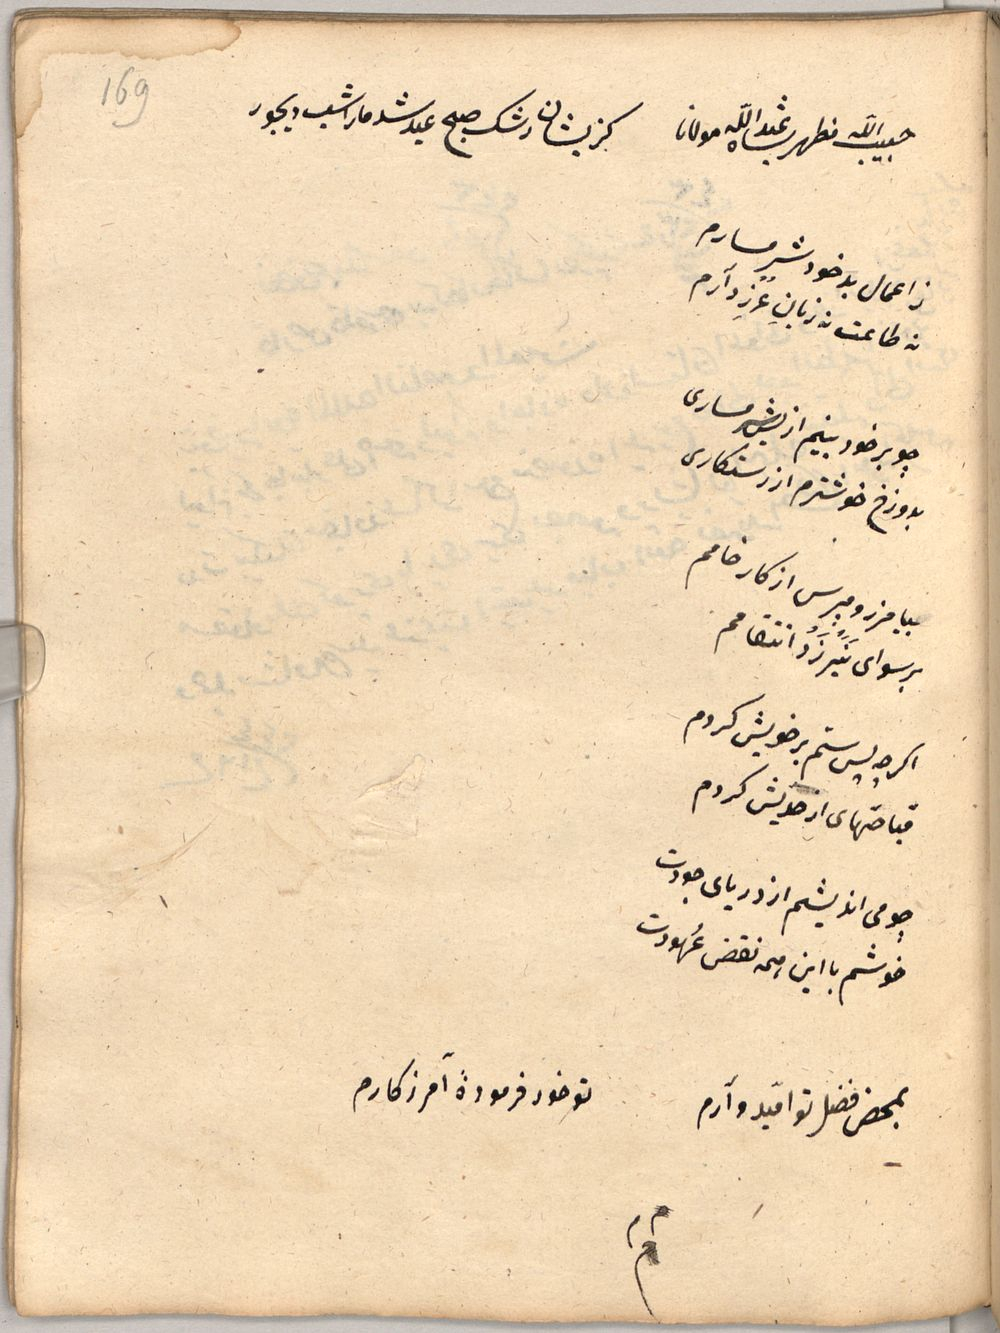 169
حبیب الله مظهر شاه عبدالله مولانا کزیشان رشک صبح عید شد ما را شب دیجور
ز اعمال بد خود شرمسارم
نه طاعت نه زبان عذر دارم
چو بر خود بینم از بس شرمساری
بدوزخ خوشترم از رستکاری
بیامرز و مپرس از کار خامم
برسوای نیرزد انتقامم
اکر چه بس ستم بر خویش کردم
قباحتهای از حد بیش کردم
چو می اندیشم از دریای جودت
خوشم با این همه نقض عهودت
بمحض فضل تو امّیدوارم تو خود فرمودهٔ آمرزکارم